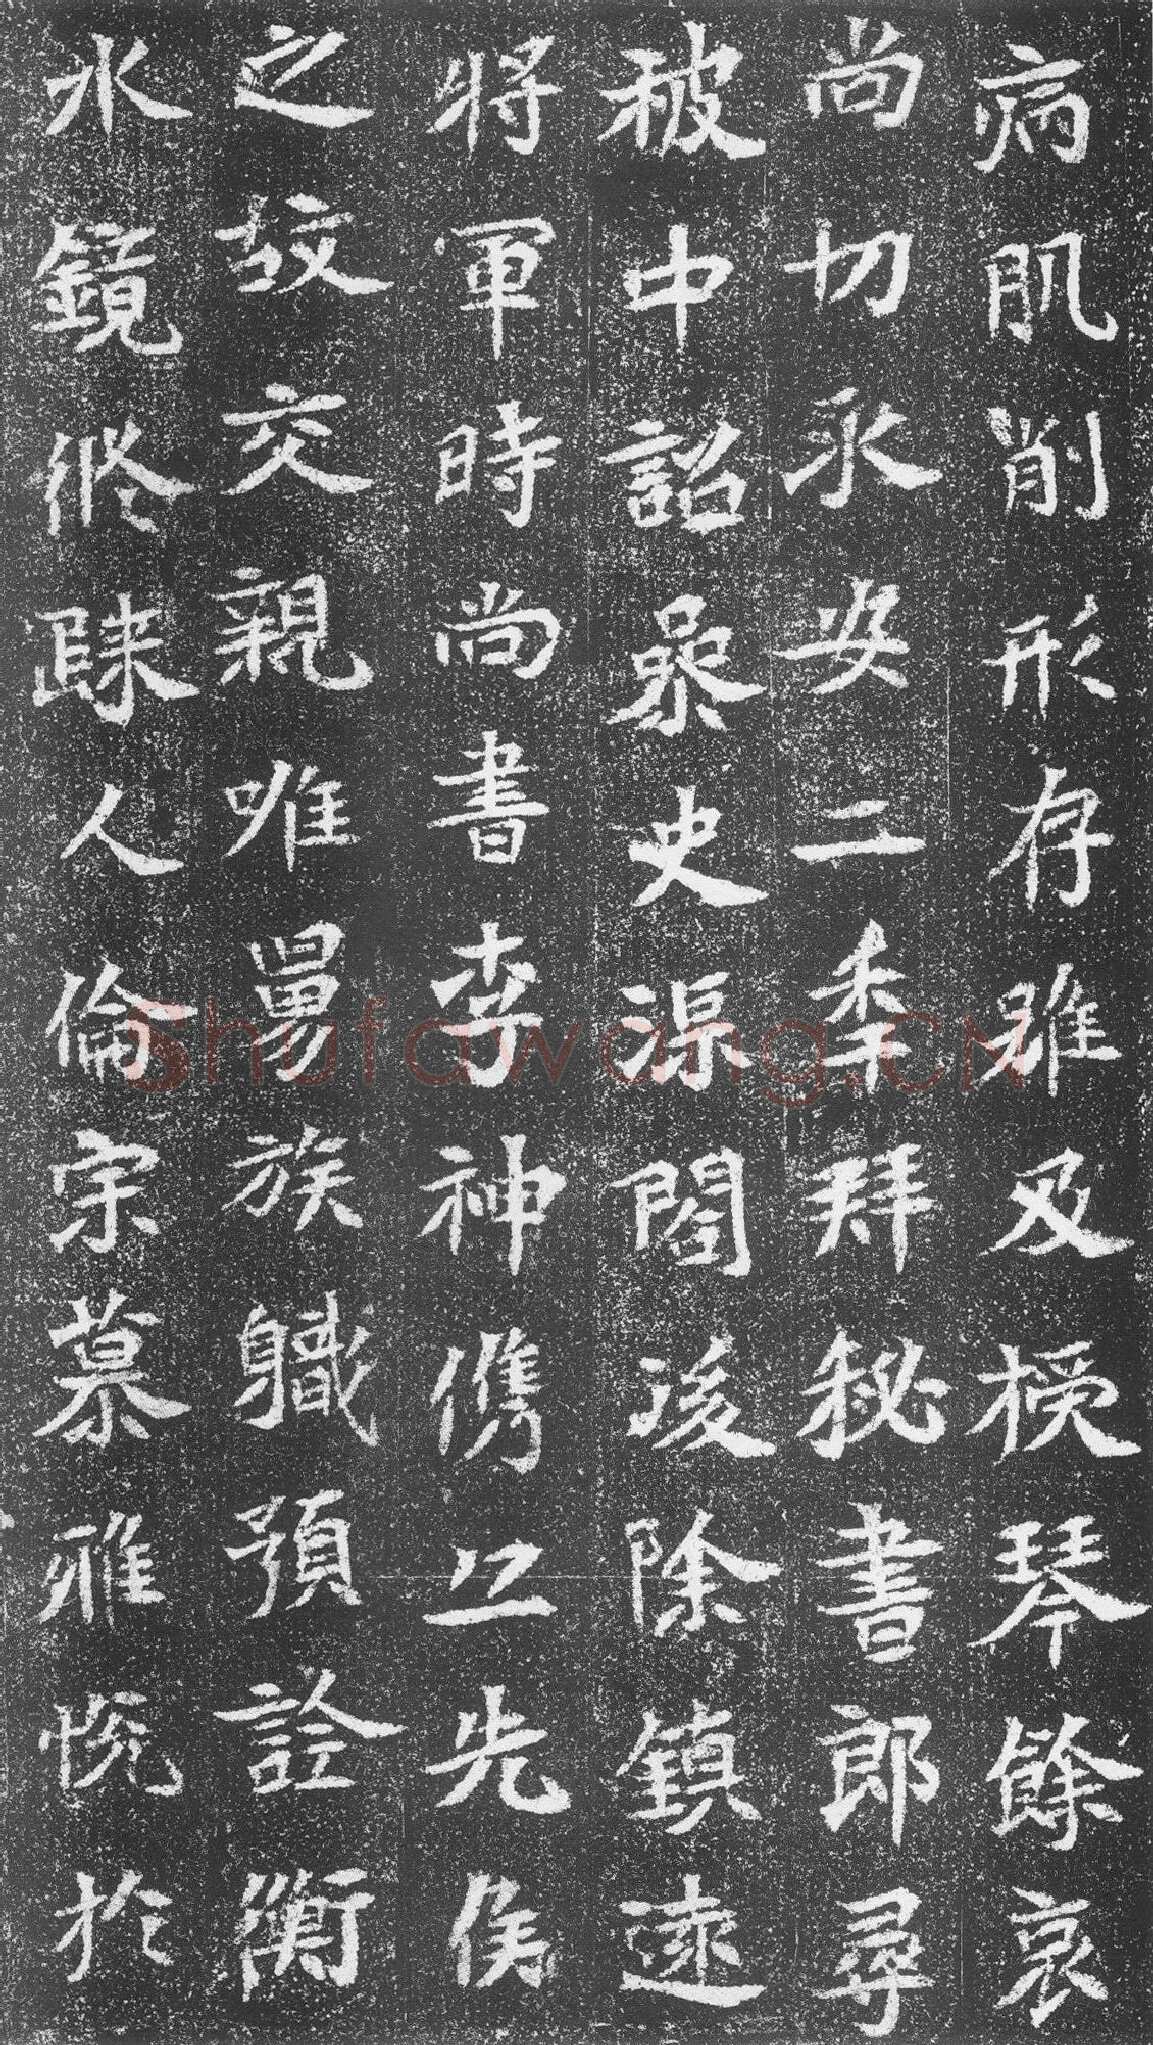 病肌削形存雖及援琴餘哀
尚切永安二秊拜秘書郎尋
被中詔叅史渠閣後除鎮遠
將軍時尚書李神儁以先侯
之故交親唯舅族職預詮衡
水鏡脩踈人倫宗慕雅悦於
Shufawang.CN